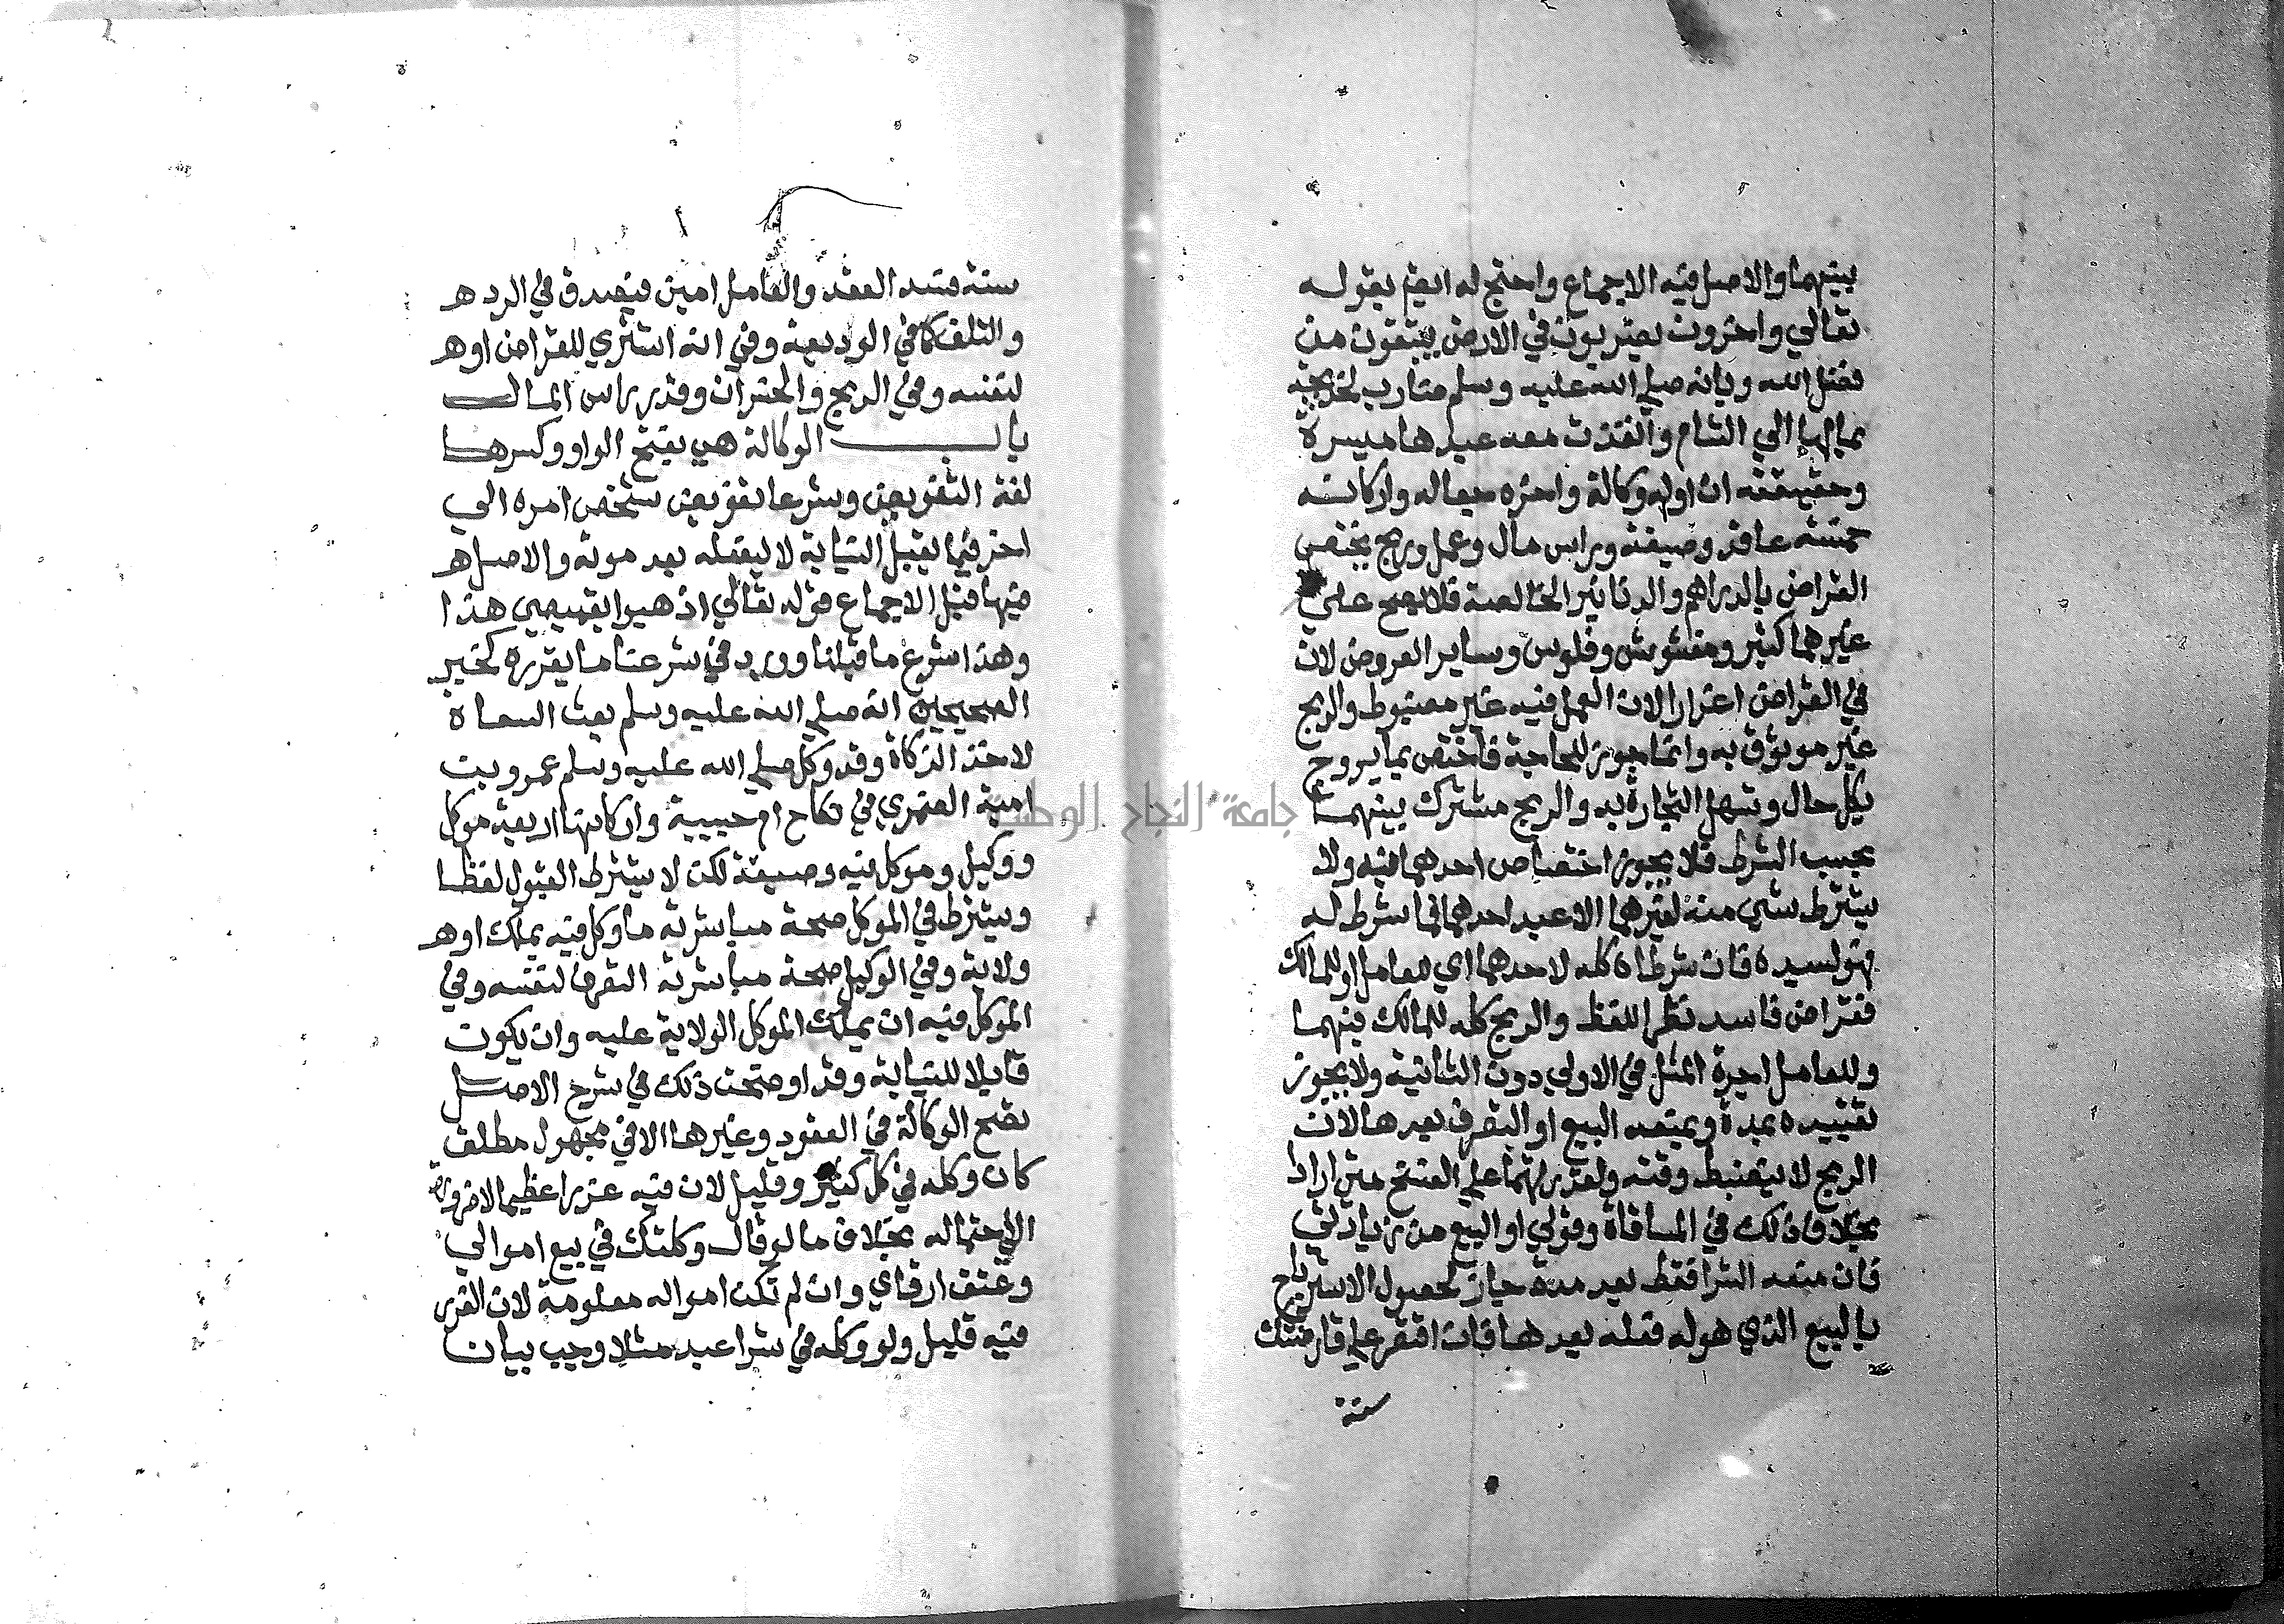 بينهما والاصل فيه الاجماع واحتج له ايضا بقوله
تعالي واخرون يضربون في الارض يبتغون من
فضل الله وبانه صلي الله عليه وسلم ضارب لخديجة
بمالها الي الشام وانفذت معه عبدها ميسرة
وحقيقته ان اوله وكالة واخره جعاله واركانه
خمسة عاقد وصيغة وراس مال وعمل وربح يختص
القراض بالدراهم والدنانير الخالصة فلا يصح علي
غيرهما كتبر ومغشوش وفلوس وساير العروض لان
في القراض اغرارا لان العمل فيه غير مضبوط والربح
غير موثوق به وانما جوز للحاجة فاختص بما يروج
بكل حال وتسهل التجارة به والربح مشترك بينهما
بحسب الشرط فلا يجوز اختصاص احدهما فيه ولا
يشترط شي منه لغيرهما الا عبد احدهما فما شرط له
فهو لسيده فان شرطاه كله لاحدهما اي للعامل او للمالك
فقراض فاسد نظرا للفظ والربح كله للمالك فيهما
وللعامل اجرة المثل في الاولي دون الثانية ولا يجوز
تقييده بمدة ويمنعه البيع او التصرف بعدها لان
الربح لا ينضبط وقته ولقدرتهما علي الفسخ متي ارادا
بخلاف ذلك في المساقاة وقولي او البيع من زيادتي
فان منعه الشرا فقط بعد مدة جاز لحصول الاسترباح
بالبيع الذي هو له فعله بعدها فان اقتصر علي قارضتك
سنة
سنة فسد العقد والعامل امين فيصدق في الرد ه
والتلف كما في الوديعة وفي انه اشتري للقراض او ه
لنفسه وفي الربح والخسران وقدر راس المال
باب الوكالة هي بفتح الواو وكسرها
لغة التفويض وشرعا تفويض شخص امره الي
اخر فيما يقبل النيابة لا ليفعله بعد موته والاصل ه
فيها قبل الاجماع قوله تعالي اذهبوا بقميصي هذا
وهذا شرع ما قبلنا وورد في شرعنا ما يقرره كخبر
الصحيحين انه صلي الله عليه وسلم بعث السعاة
لاخذ الزكاة وقد وكل صلي الله عليه وسلم عمرو بن
امية الضمري في نكاح ام حبيبة واركانها اربعة موكل
ووكيل وموكل فيه وصيغة لكن لا يشترط القبول لفظا
ويشترط في الموكل صحة مباشرته ما وكل فيه بملك او ه
ولاية وفي الوكيل صحة مباشرته التصرف لنفسه وفي
الموكل فيه ان يملك الموكل الولاية عليه وان يكون
قابلا للنيابة وقد اوضحت ذلك في شرح الاصل
تصح الوكالة في العقود وغيرها الا في مجهول مطلق
كان وكله في كل كثير وقليل لان فيه غررا عظيما لا ضرورة
الي احتماله بخلاف ما لو قال وكلتك في بيع اموالي
وعتق ارقاي وان لم تكن امواله معلومة لان الغرر
فيه قليل ولو وكله في شرا عبد مثلا وجب بيان
جامعة النجاح الوطنية